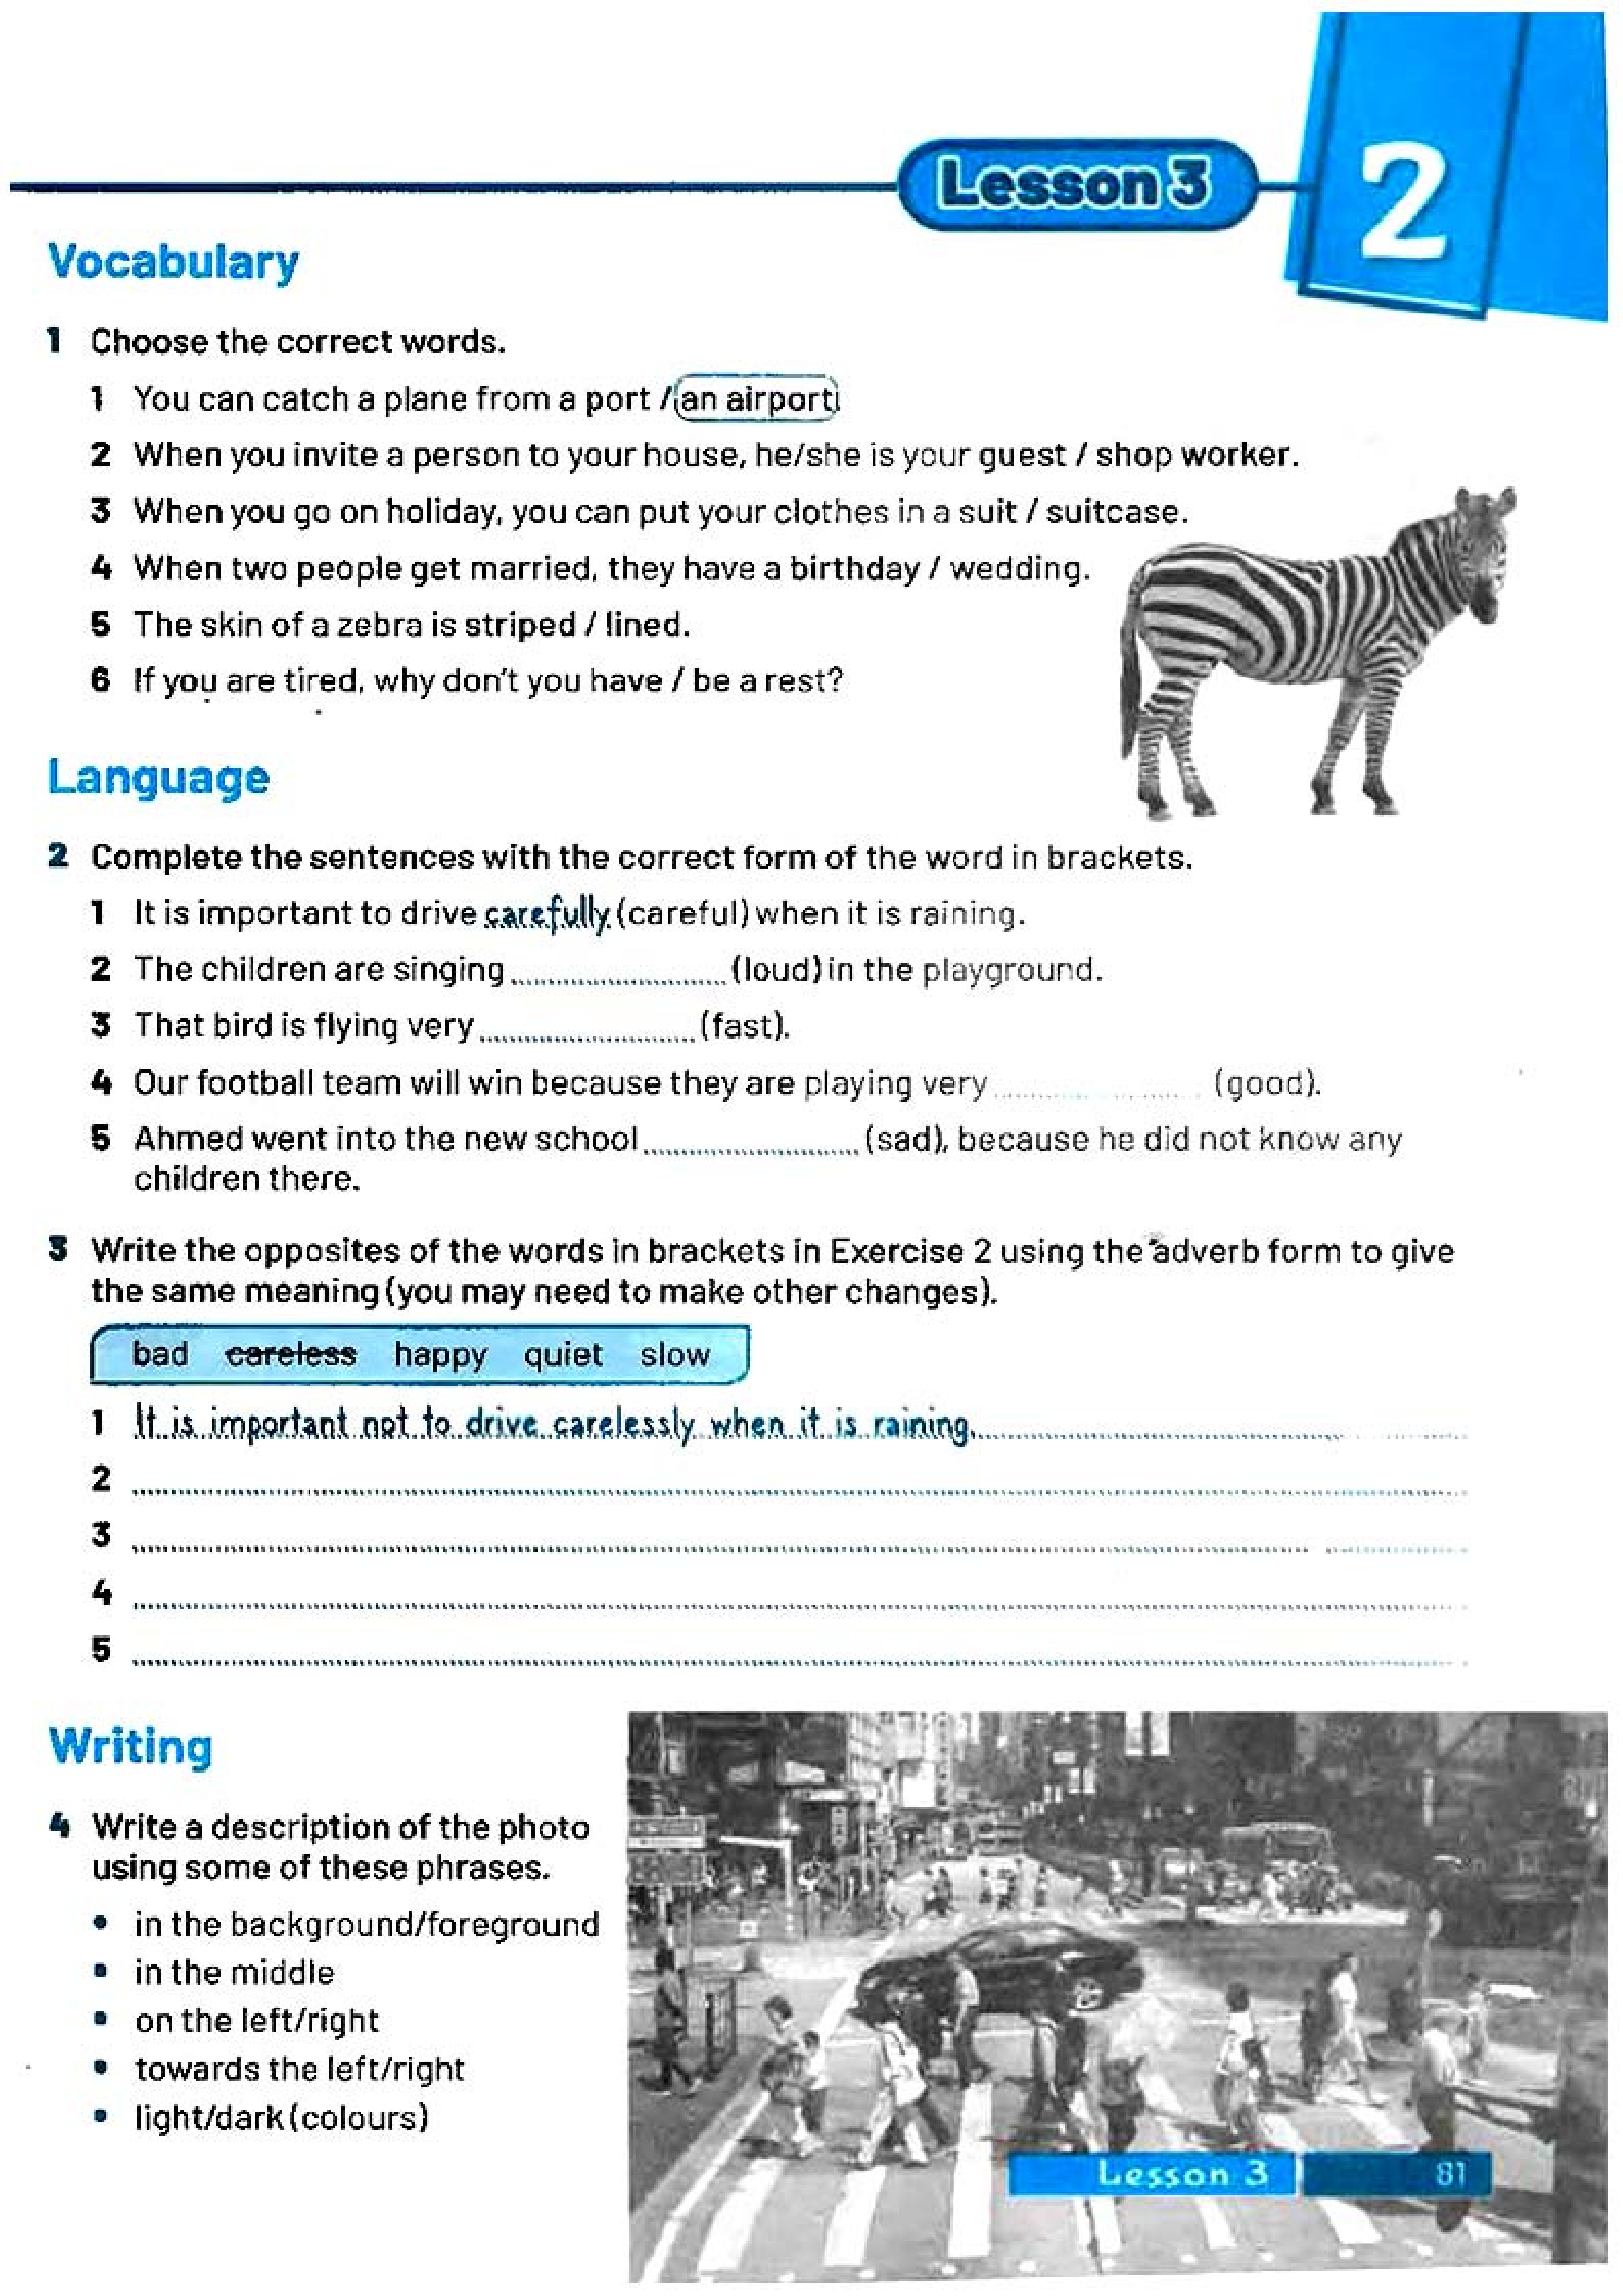 Lesson 3
2
Vocabulary
1 Choose the correct words.
1 You can catch a plane from a port / an airport.
2 When you invite a person to your house, he/she is your guest / shop worker.
3 When you go on holiday, you can put your clothes in a suit / suitcase.
4 When two people get married, they have a birthday / wedding.
5 The skin of a zebra is striped / lined.
6 If you are tired, why don't you have / be a rest?
Language
2 Complete the sentences with the correct form of the word in brackets.
1 It is important to drive carefully (careful) when it is raining.
2 The children are singing ........................ (loud) in the playground.
3 That bird is flying very ........................ (fast).
4 Our football team will win because they are playing very ........................ (good).
5 Ahmed went into the new school ........................ (sad), because he did not know any
children there.
3 Write the opposites of the words in brackets in Exercise 2 using the adverb form to give
the same meaning (you may need to make other changes).
bad careless happy quiet slow
1 It is important not to drive carelessly when it is raining.
2
3
4
5
Writing
4 Write a description of the photo
using some of these phrases.
• in the background/foreground
• in the middle
• on the left/right
• towards the left/right
• light/dark (colours)
Lesson 3 81